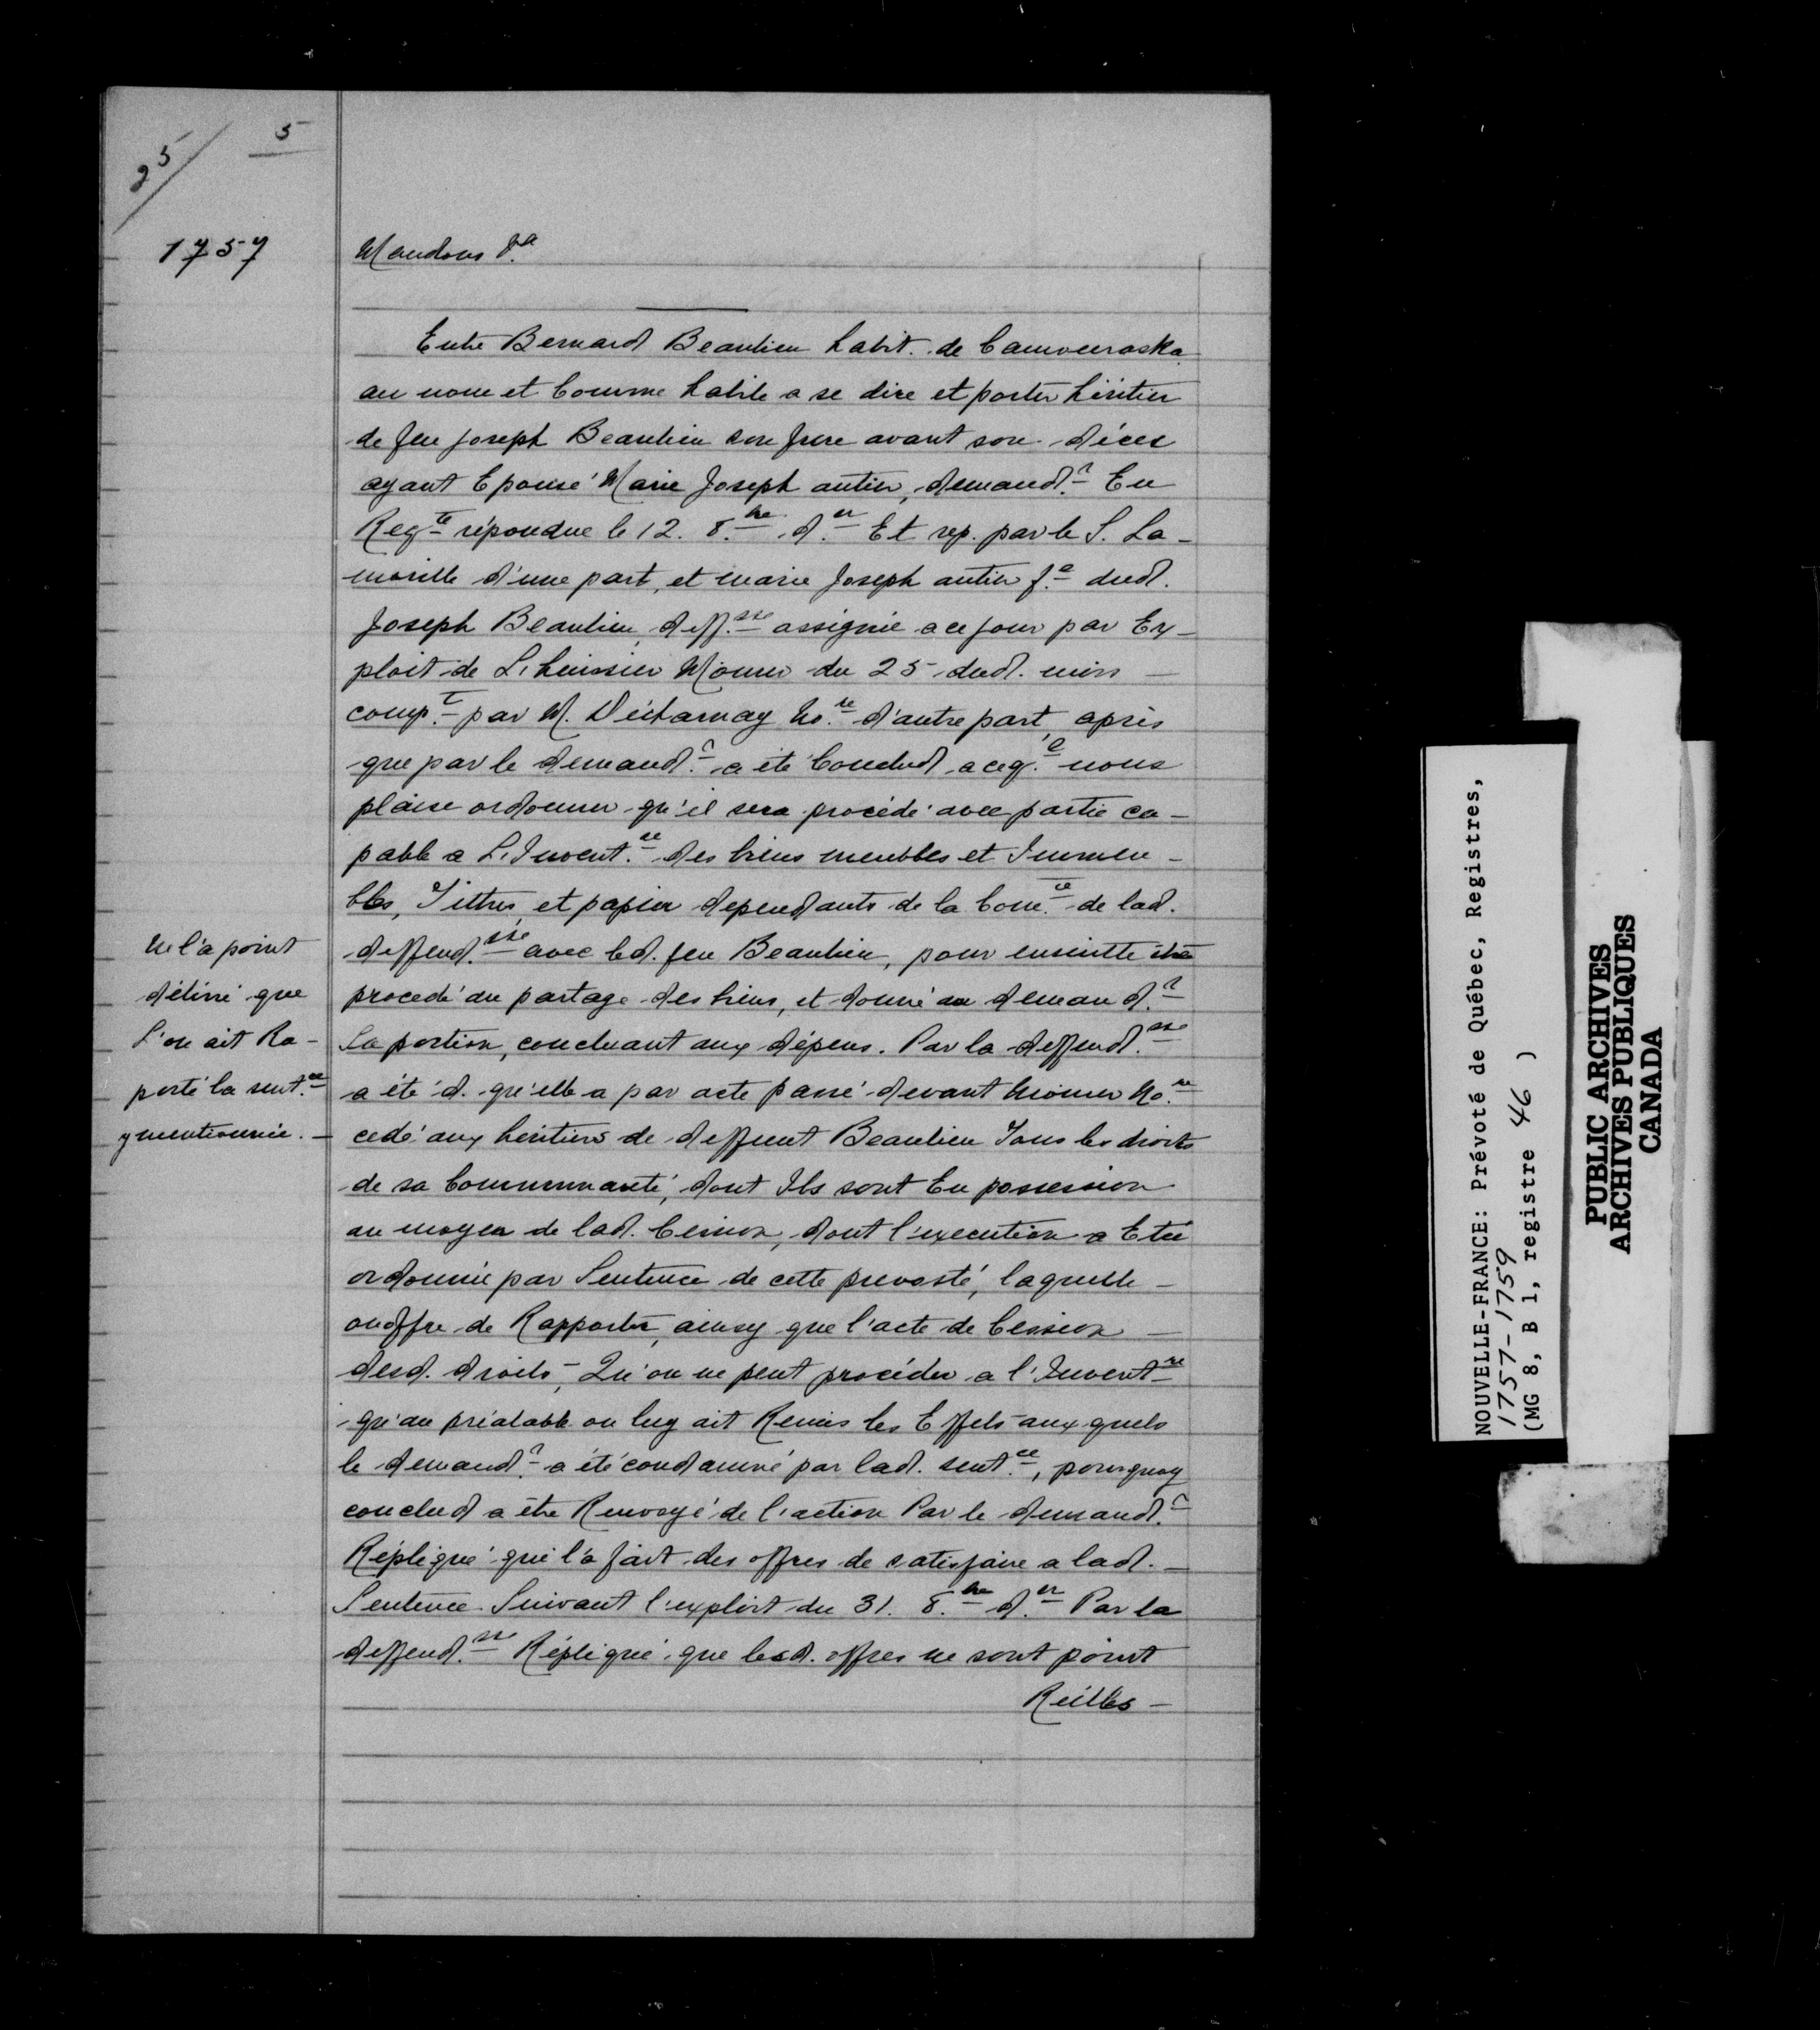 25/
5
1757
Mandons &.a
Entre Bernard Beaulieu habit. de Camouraska
au nom et Comme habile a se dire et porter héritier
de feu Joseph Beaulieu son frere avant son déces
ayant Epousé Marie Joseph autin, demand.r En
Reqte répondue le 12. 8.bre d.er Et rep. par le S. La-
morille d'une part, et marie Joseph autin f.e dud.
Joseph Beaulieu, deff.sse assignée a ce jour par Ex-
ploit de L'huissier Mounier du 25 dud. mois
comp.t par M. Décharnay No.re d'autre part, après
que par le demand.r a été Conclud a ceq.e nous
plaise ordonner qu'il sera procédé avec partie ca-
pable a L'Invent.re des biens meubles et Immeu-
bles, Tittres, et papier dependants de la Com.té de lad.
deffend.sse avec led. feu Beaulieu, pour ensuitte être
procedé au partage des biens, et donné au demand.r
Sa portion, concluant aux dépens. Par la deffend.sse
a été d. qu'elle a par acte passé devant Mounier No.re
cedé aux héritiers de deffunt Beaulieu Tous les droits
de sa Communauté, dont Ils sont En possession
au moyen de lad. Cession, dont l'execution a Eté
ordonnée par Sentence de cette prevosté, laquelle
on offre de Rapporter, ainsy que l'acte de Cession
desd. droits, Qu'on ne peut procéder a l'Invent.re
qu'au préalable on luy ait Remis les Effets auxquels
le demand.r a été condamné par lad. sent.ce, pourquoy
conclud a être Renvoyé de l'action Par le demand.r
Répliqué qui l'a fait des offres de satisfaire a lad.
Sentence Suivant l'exploit du 31. 8.bre d.er Par la
deffend.sse Répliqué que lesd. offres ne sont point
Réélles
Ne l'a point
déliné que
L'on ait Ra-
porté la sent.ce
y mentionnée.
NOUVELLE-FRANCE: Prévoté de Québec, Registres,
1757-1759
(MG 8, B 1, registre 46 )
PUBLIC ARCHIVES
ARCHIVES PUBLIQUES
CANADA